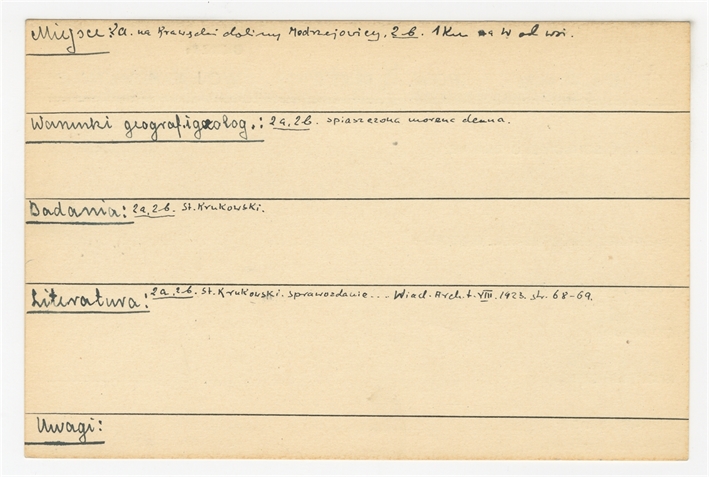 Miejsce: 2a. na Krawędzi doliny Modrzejowicy, 2b. 1 Km na W od wsi.
Warunki geograf. i geolog.: 2a, 2b. spiaszczona morena denna.
Badania: 2a, 2b. St. Krukowski.
Literatura: 2a, 2b. St. Krukowski. Sprawozdanie.... Wiad. Arch. t. VIII. 1923. str. 68-69.
Uwagi: